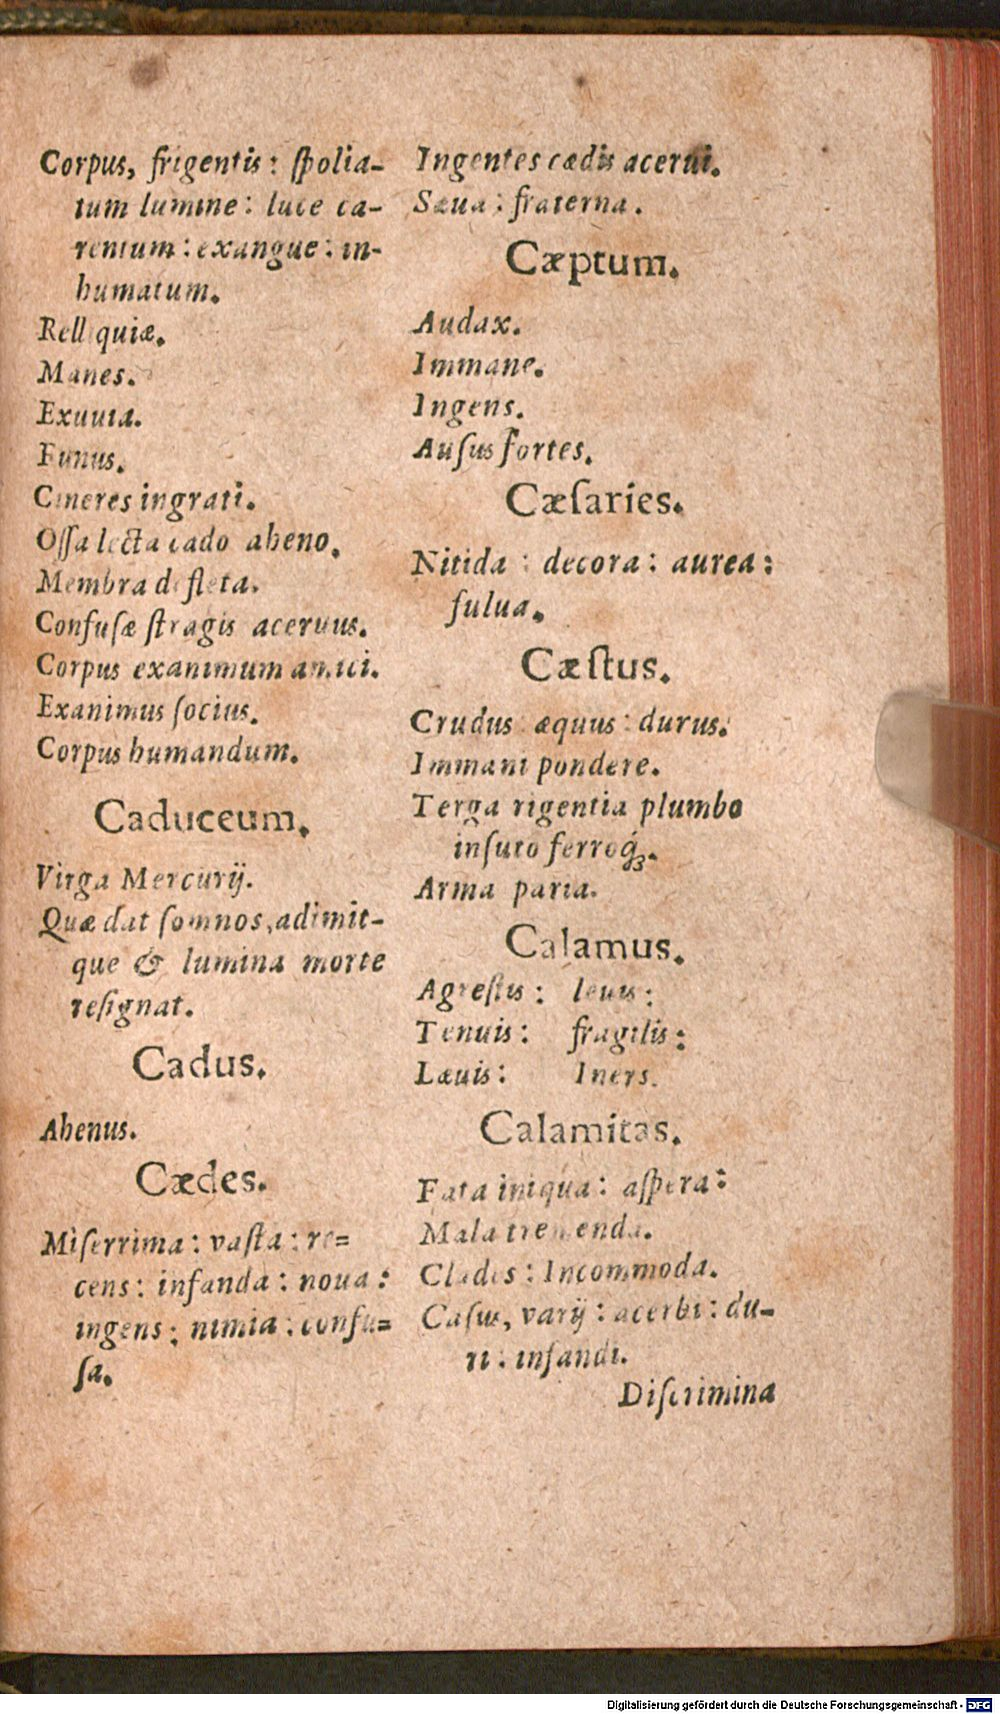 Corpus, frigentis: ſpolia-
tum lumine: luce ca-
rentum: exangue: in-
humatum.
Relliquiæ.
Manes.
Exuuia.
Funus.
Cineres ingrati.
Oſſa lecta cado aheno.
Membra defleta.
Confuſæ ſtragis aceruus.
Corpus exanimum amici.
Exanimus ſocius.
Corpus humandum.
Caduceum.
Virga Mercurij.
Quæ dat ſomnos, adimit-
que & lumina morte
reſignat.
Cadus.
Ahenus.
Cædes.
Miſerrima: vaſta: re=
cens: infanda: noua:
ingens: nimia: confu=
ſa.
Ingentes cædis acerui.
Sæua: fraterna.
Cæptum.
Audax.
Immane.
Ingens.
Auſus fortes.
Cæſaries.
Nitida: decora: aurea:
fulua.
Cæſtus.
Crudus: æquus: durus.
Immani pondere.
Terga rigentia plumbo
inſuto ferroꝗ́;.
Arma paria.
Calamus.
Agreſtis: leuis:
Tenuis: fragilis:
Læuis: Iners.
Calamitas.
Fata iniqua: aſpera:
Mala tremenda.
Clades: Incommoda.
Caſus, varij: acerbi: du-
ri: infandi.
Diſcrimina
Digitalisierung gefördert durch die Deutsche Forschungsgemeinschaft - DFG